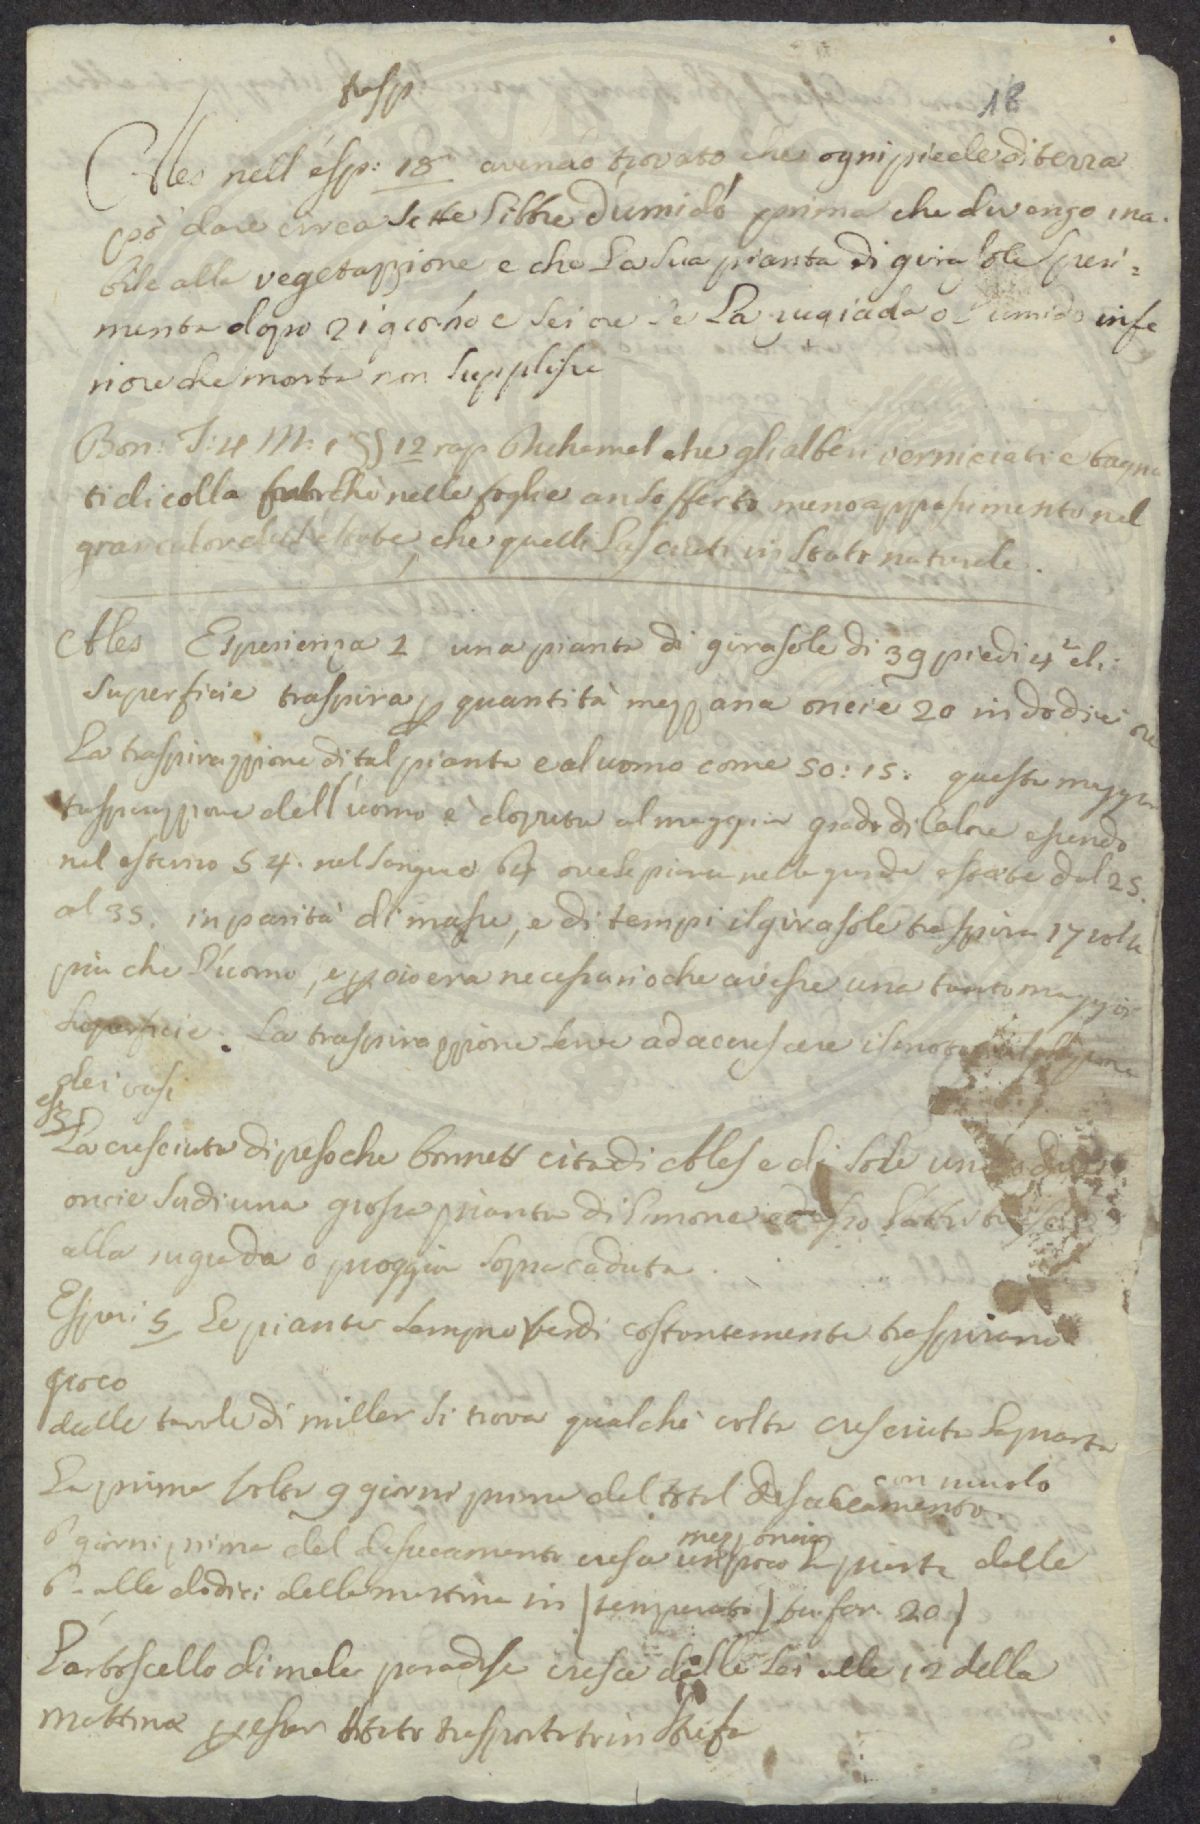 trasp
18
Ales nell'esp: 18 avendo trovato che ogni piede di terra
può dare circa sette libbre d'umido prima che divengo ina-
bile alla vegetazzione e che la sua pianta di girasole speri=
menta dopo 21 giorno e sei ore se la rugiada o l'umido infe
riore che monta non supplisse
Bon: T: 4 M: 1 §§ 12 rap Duhamel che gli alberi verniciati e bagna
ti di colla fuorchè nelle foglie an sofferto meno appasimento nel
gran calor dell'estate, che quelli lasciati in stato naturale.
Ales Esperienza 1 una pianta di girasole di 39 piedi 4 di
superficie traspira p quantità mezzana oncie 20 in dodici ore
La traspirazzione di tal pianta e al uomo come 50: 15: questa maggior
traspirazzone dell'uomo è dovuta al maggior grado di calore essendo
nel esterno 54. nel sangue 64 ove le piante nelle grandi estate dal 25.
al 35. in parità di masse, e di tempi il girasole traspira 17 volte
più che l'uomo, e p ciò era necessario che avesse una tanto maggior
superficie. La traspirazzione serve ad accrescere il moto
dei vasi
esp 5
La cresciuta di peso che bonnett cita di Ales e di sole una o due
oncie su di una grossa pianta di limone
alla rugiada o pioggia sopracaduta.
Esperi 5 Le piante sempre verdi costantemente traspirano
poco
dalle tavole di miller si trova qualche volta cresciuta la pianta
La prima volta 9 giorni prima del total disseccamento. con nuvolo
6 giorni prima del disseccamento cresce un poco mezz oncia la pianta dalle
6 - alle dodici della mattina in (temperato) 20)
L'arboscello di mele paradiso cresce dalle sei alle 12 della
mattina p esser stato trasportato in stufa